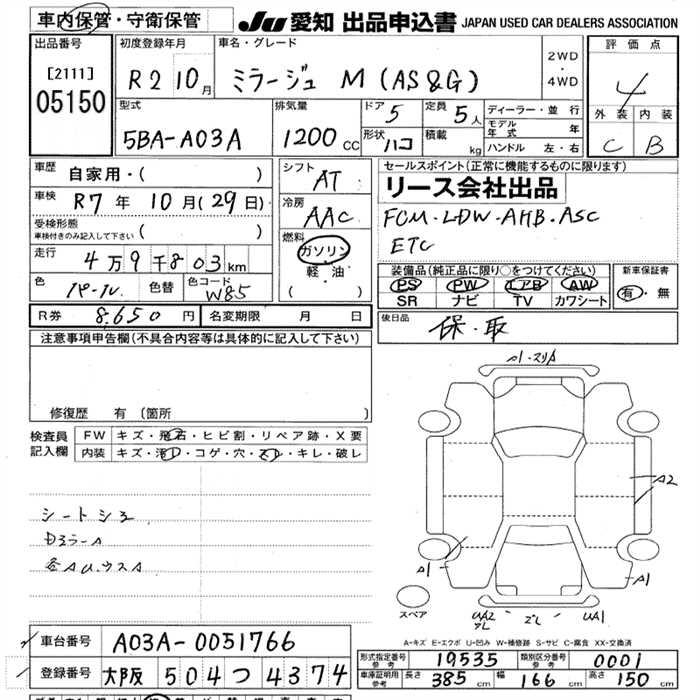 車内保管・守衛保管
JU 愛知 出品申込書 JAPAN USED CAR DEALERS ASSOCIATION
出品番号
[2111]
05150
初度登録年月
R2 10月
車名・グレード
ミラージュ M (AS&G)
2WD
・
4WD
評価点
4
外装 内装
C B
型式
5BA-A03A
排気量
1200cc
ドア 5
形状 ハコ
定員 5人
積載 kg
ディーラー・並行
モデル年式 年
ハンドル 左・右
車歴 自家用・( )
車検 R7年10月(29日)
受検形態
車検付きのみ記入して下さい ( )
走行 4万9千803km
色 パール 色替 色コード W85
シフト
AT
冷房
AAC
燃料
ガソリン
軽・油
( )
セールスポイント(正常に機能するものに限ります)
リース会社出品
FCM・LDW・AHB・ASC
ETC
装備品(純正品に限り○をつけてください)
PS PW エアB AW
SR ナビ TV カワシート
新車保証書
有・無
R券 8,650円 名変期限 月 日
後日品 保・取
注意事項申告欄(不具合内容等は具体的に記入して下さい)
修復歴 有 (箇所
検査員記入欄
FW キズ・飛石・ヒビ割・リペア跡・X要
内装 キズ・汚レ・コゲ・穴・スレ・キレ・破レ
シートシミ
各AU、ウスA
A1・スリA
A2
A1
A1
スペア
UA2
UA1
A-キズ E-エクボ U-凹み W-補修跡 S-サビ C-腐食 XX-交換済
車台番号 A03A-0051766
登録番号 大阪 504 つ 4374
形式指定番号 参考 19535 類別区分番号 参考 0001
車庫証明用 参考 長さ 385cm 幅 166cm 高さ 150cm